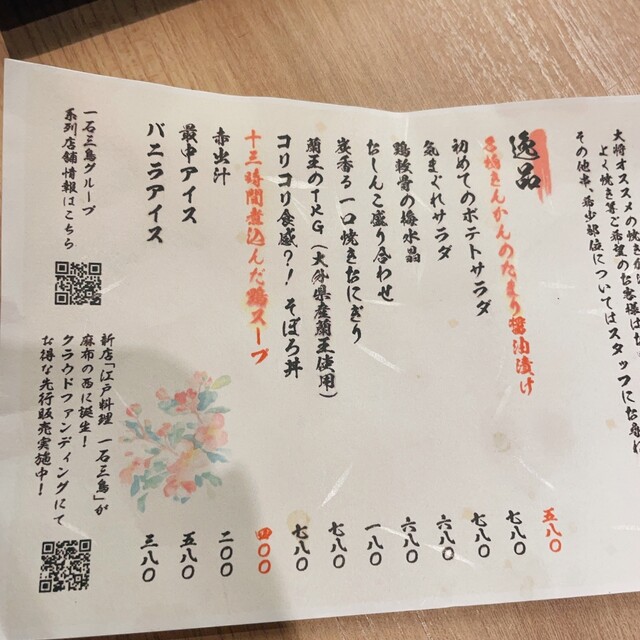 大将オススメの焼き
よく焼き等ご希望のお客様は
その他串、希少部位についてはスタッフにお尋ね
逸品
名物きんかんのたまり醤油漬け 五八〇
初めてのポテトサラダ 七八〇
気まぐれサラダ 七八〇
鶏軟骨の梅水晶 六八〇
おしんこ盛り合わせ 六八〇
炭香る一口焼きおにぎり 一八〇
蘭王のTKG（大分県産蘭王使用） 七八〇
コリコリ食感？！そぼろ丼 七八〇
十三時間煮込んだ鶏スープ 四〇〇
赤出汁 二〇〇
最中アイス 五八〇
バニラアイス 三八〇
一石三鳥グループ
系列店舗情報はこちら
新店「江戸料理 一石三鳥」が
麻布の西に誕生！
クラウドファンディングにて
お得な先行販売実施中！